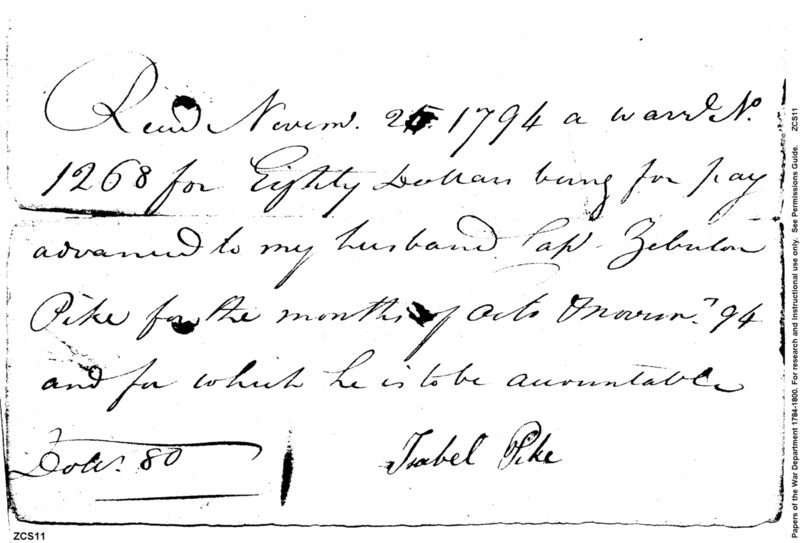 Recd Novem. 25. 1794 a warrt No.
1268 for Eighty Dollars being for pay
advanced to my husband Cap. Zebulon
Pike for the months of Octo & Novem.r 94
and for which he is to be accountable
Dolrs. 80
Isabel Pike
ZCS11
Papers of the War Department 1784-1800. For research and instructional use only. See Permissions Guide. ZCS11